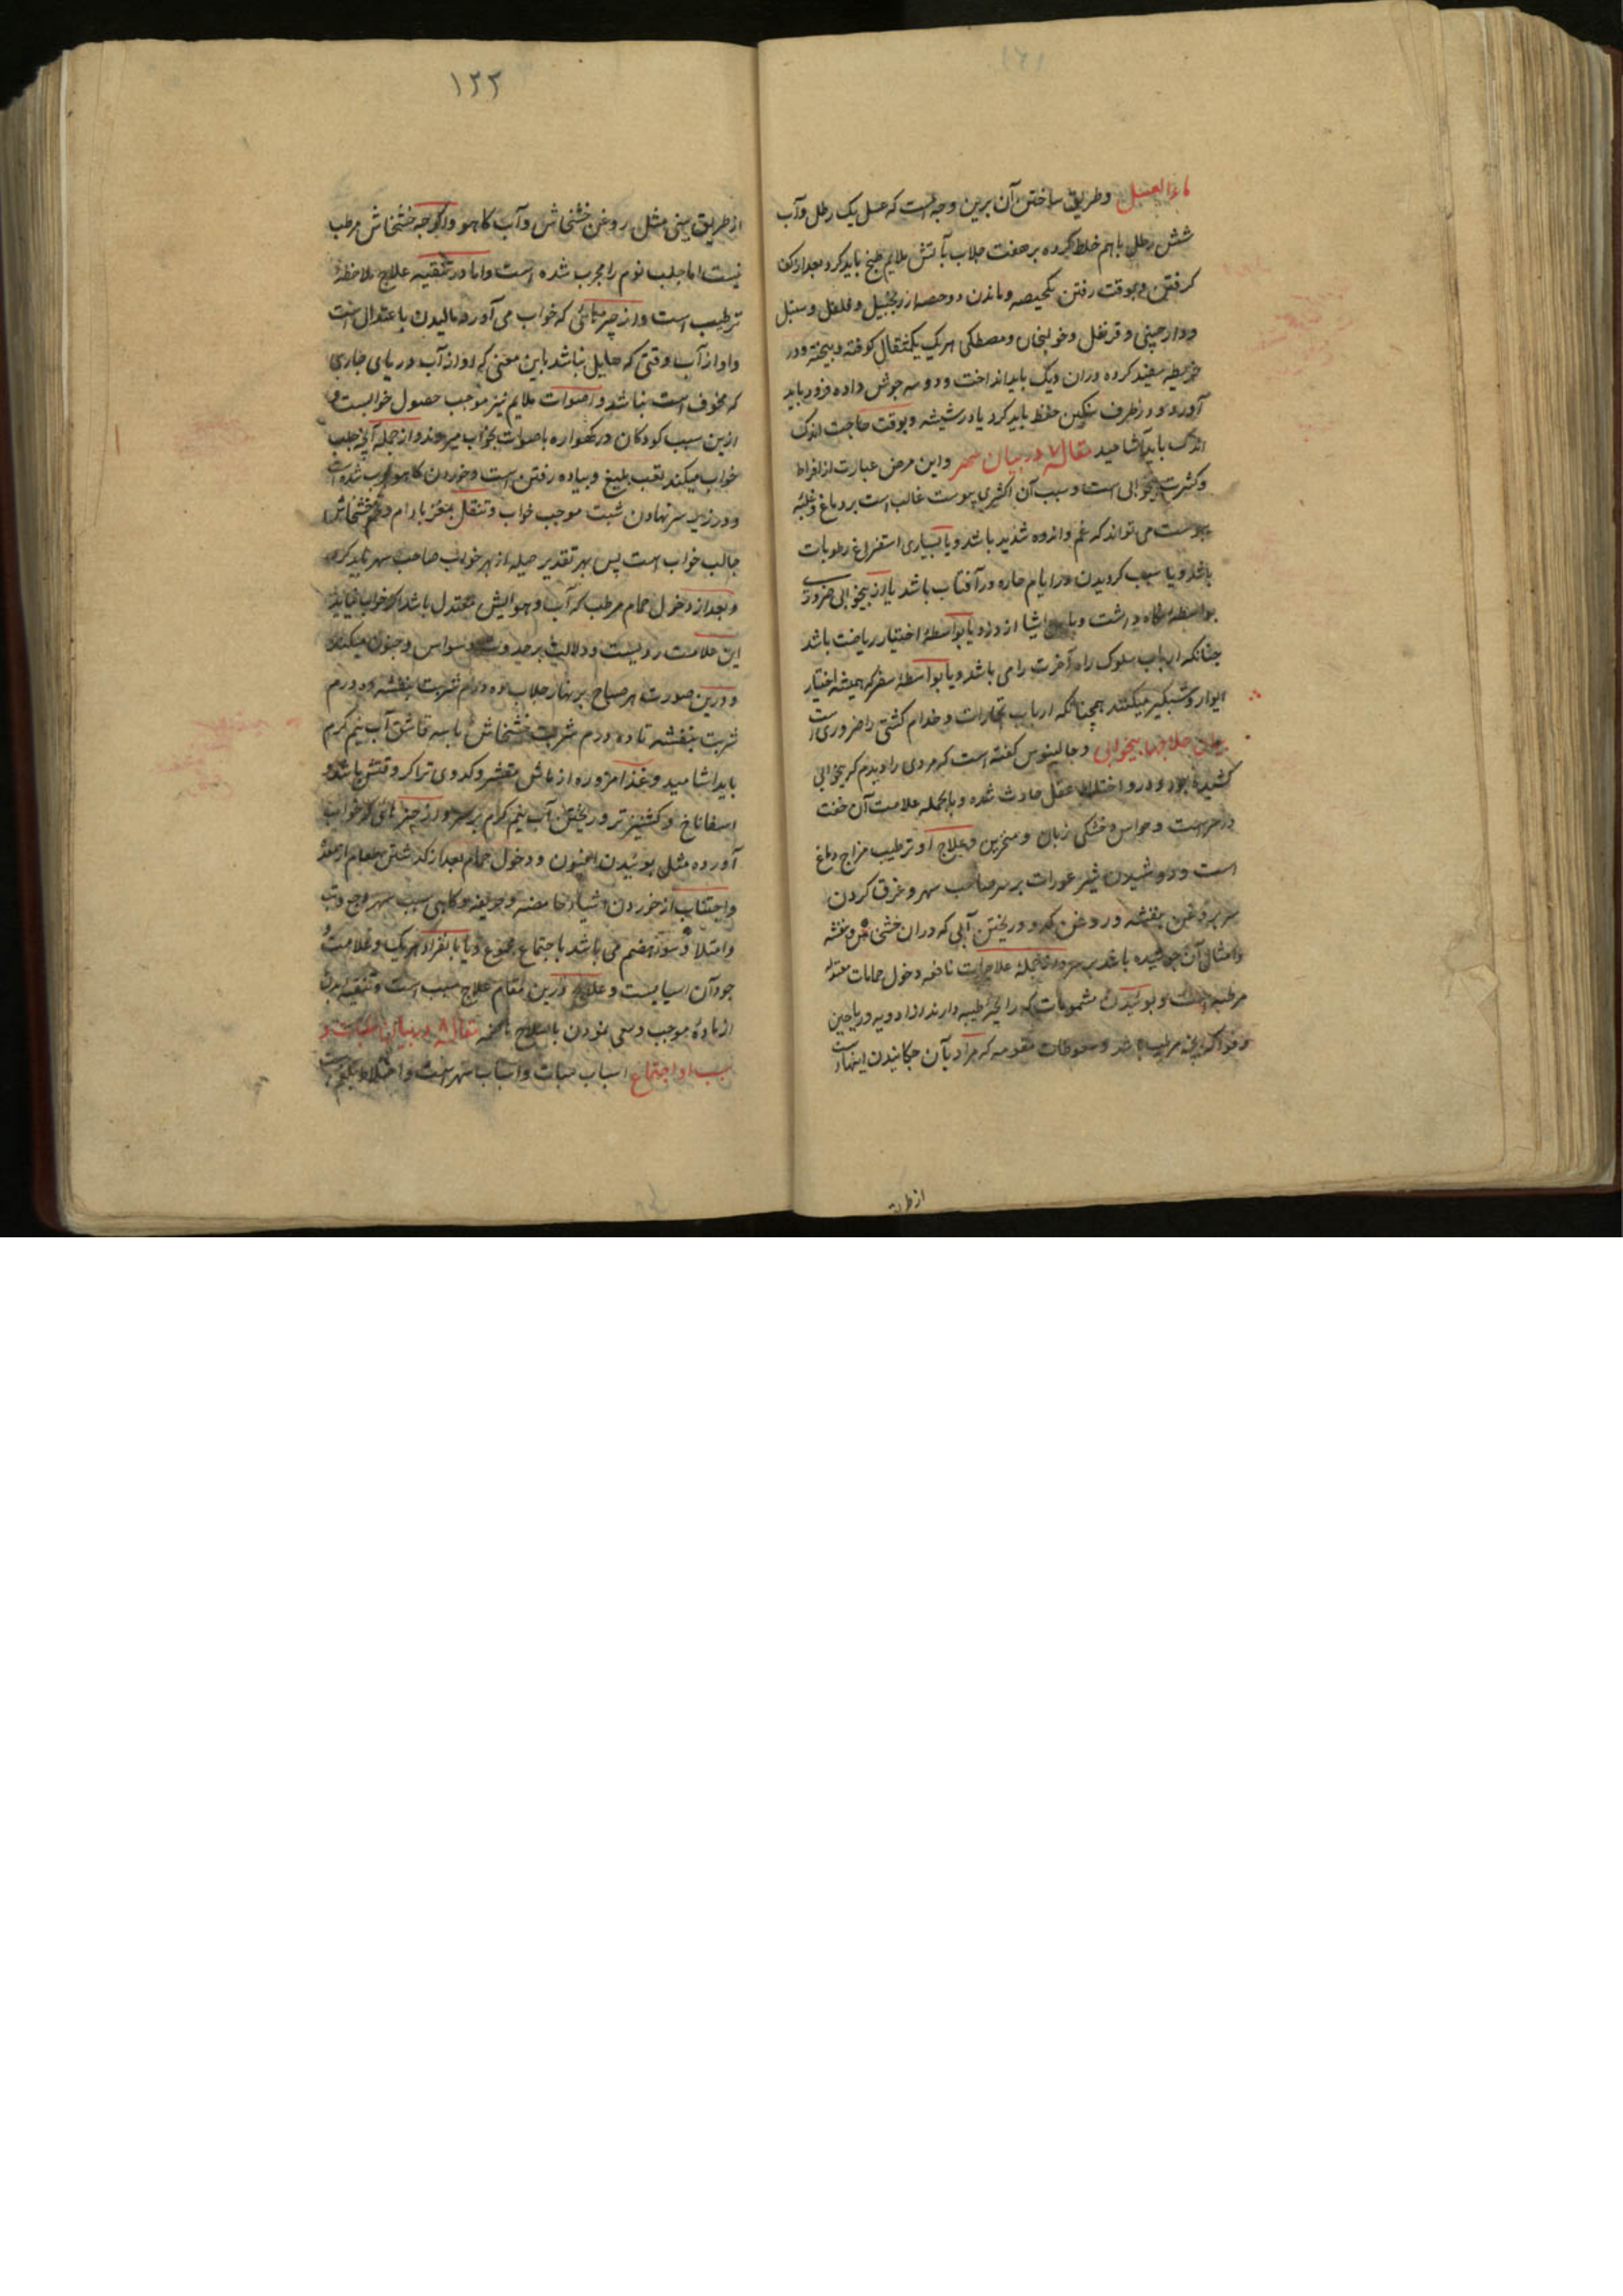 ماء العسل وطریق ساختن آن برین وجه است که عسل یک رطل وآب
شش رطل باهم خلط کرده بر صفت جلاب بآتش ملایم طبخ باید کرد بعد از کف
کرفتن وبوقت رفتن یکحصه وماندن دو حصه از زنجبیل وفلفل وسنبل
ودارچینی وقرنفل وخولنجان ومصطکی هر یک یکمثقال کوفته وبیخته ودر
خریطه سفید کرده دران دیک باید انداخت ودو سه جوش داده فرود باید
آورد ودر ظرف سنکین حفظ باید کرد یا در شیشه وبوقت حاجت اندک
اندک باید آشامید مقاله ۷ در بیان سهر واین مرض عبارت از افراط
وکثرت بیخوابی است وسبب آن اکثری یبوست غالب است بر دماغ وغلبهٔ
یبوست می تواند که غم واندوه شدید باشد ویا بسیاری استفراغ رطوبات
باشد ویا سبب کردیدن در ایام حاره در آفتاب باشد یا از بیخوابی ضروری
بواسطهٔ نکاه داشت اشیا از دزد ویا بواسطهٔ اختیار ریاضت باشد
چنانکه ارباب سلوک راه آخرت را می باشد ویا بواسطهٔ سفر که همیشه اختیار
ایوار وشبکیر میکنند همچنانکه ارباب تجارات وخدام کشتی را ضروری است
بیان علاجهاء بیخوابی وجالینوس کفته است که مردی را دیدم که بیخوابی
کشیده بود ودرو اختلال عقل حادث شده وبالجمله علامت آن خفت
در سر است وحواس وخشکی زبان ومنخرین وعلاج او ترطیب مزاج دماغ
است ودوشیدن شیر عورات بر سر صاحب سهر وغرق کردن
سر بروغن بنفشه وروغن کدو وریختن آبی که دران خشخاش وبنفشه
وامثال آن جوشیده باشد بر سر واز جملهٔ علاجات نافعه دخول حمامات معتدله
مرطبه است وبوئیدن مشمومات که رایحهٔ طیبه دارند از ادویه وریاحین
وفواکه مرطب باشد وسعوطات منومه که مراد بآن چکانیدن اینهاست
از طریق
۱۲۲
از طریق بینی مثل روغن خشخاش وآب کاهو واکرچه خشخاش مرطب
نیست اما جلب نوم را مجرب شده است واما در تنقیه علاج ملاحظهٔ
ترطیب است واز چیزهائی که خواب می آورد مالیدن با عتدال است
واواز آب وقتی که هایل نباشد باین معنی که اواز آب دریای جاری
که مخوف است نباشد واصوات ملایم نیز موجب حصول خوابست و
ازین سبب کودکان در کهواره باصوات بخواب میروند واز جمله آنچه جلب
خواب میکند تعب بلیغ وپیاده رفتن است وخوردن کاهو مجرب شده است
ودر زیر سر نهادن شبت موجب خواب وتنقل بمغز بادام وتخم خشخاش
جالب خواب است پس بهر تقدیر حیله از بهر خواب صاحب سهر باید کرد
وبعد از دخول حمام مرطب که آب وهوایش معتدل باشد اکر خواب نیاید
این علامت ردیست ودلالت بر حدوث وسواس وجنون میکند
ودرین صورت هر صباح بر نهار جلاب ده درم شربت بنفشه ده درم
شربت بنفشه تا ده درم شربت خشخاش با سه قاشق آب نیم کرم
باید اشامید وغذا مزوره از ماش مقشر وکدوی تر اکر وقتش باشد و
اسفاناخ وکشنیز تر وریختن آب نیم کرم بر سر واز چیزهائی که خواب
آورده مثل بوئیدن افیون ودخول حمام بعد از کذشتن طعام از معده
واجتناب از خوردن اشیاء وکاهی سبب سهر وجع وتب
وامتلا وسوء هضم می باشد باجتماع مجموع ویا بانفراد هر یک وعلامت
وجود آن اسبابست وعلاج درین مقام علاج سبب است وتنقیه بدن
از مادهٔ موجب وسعی نمودن با صلاح هاضمه مقاله ۸ در بیان سبات و
سبب او اجتماع اسباب سبات واسباب سهر است واختلاط